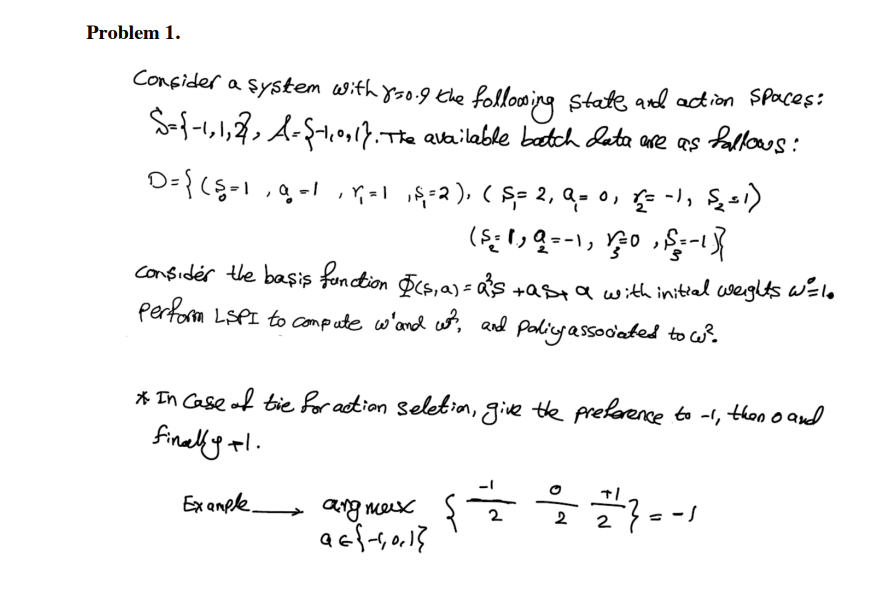 Problem 1.
Consider a system with γ=0.9 the following state and action spaces:
S={-1,1,2}, A={-1,0,1}. The available batch data are as follows:
D={(S₀=1, a₀=1, r₁=1, S₁=2), (S₁=2, a₁=0, r₂=-1, S₂=1)
(S₂=1, a₂=-1, r₃=0, S₃=-1)}
consider the basis function Φ(s,a)=a²s+as+a with initial weights w⁰=1.
perform LSPI to compute w¹ and w², and policy associated to w².
* In Case of tie for action seletion, give the preference to -1, then 0 and
finally +1.
Example → argmax { -1/2 0/2 +1/2 } = -1
a∈{-1,0,1}